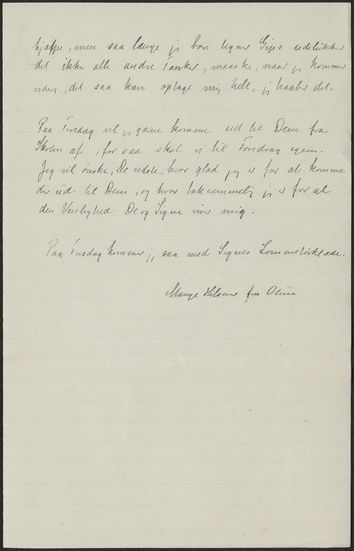 hjælpe, men saa længe jeg bare tegner Gips udelukker
det ikke alle andre Tanker, maaske, naar jeg kommer
videre, det saa kan optage mig helt, jeg haaber det.
Paa Tirsdag vil jeg gerne komme ud til Dem fra
Skolen af, for saa skal vi til Foredrag igen.
Jeg vil ønske, De vidste, hvor glad jeg er for at komme
der ud til Dem, og hvor taknemmelig jeg er for al
den Venlighed De og Signe viser mig.
Paa Tirsdag kommer jeg saa med Signes Lommetørklæde.
Mange Hilsner fra Olivia